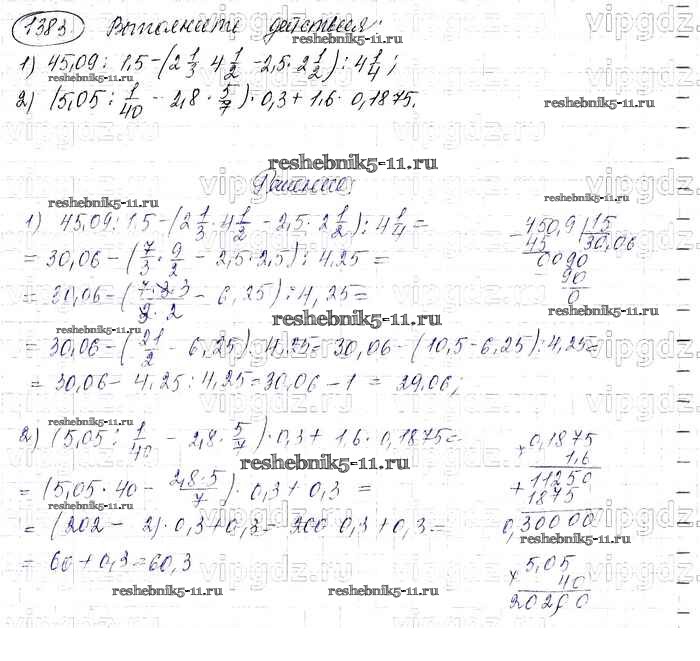 1383. Выполните действия:
1) 45,09 : 1,5 - (2 1/3 · 4 1/2 - 2,5 · 2 1/2) : 4 1/4;
2) (5,05 : 1/40 - 2,8 · 5/7) · 0,3 + 1,6 · 0,1875.
Решение:
1) 45,09 : 1,5 - (2 1/3 · 4 1/2 - 2,5 · 2 1/2) : 4 1/4 =
= 30,06 - (7/3 · 9/2 - 2,5 · 2,5) : 4,25 =
= 30,06 - (7·3·3/3·2 - 6,25) : 4,25 =
= 30,06 - (21/2 - 6,25) : 4,25 = 30,06 - (10,5 - 6,25) : 4,25 =
= 30,06 - 4,25 : 4,25 = 30,06 - 1 = 29,06;
450,9 | 15
45 30,06
0090
90
0
2) (5,05 : 1/40 - 2,8 · 5/7) · 0,3 + 1,6 · 0,1875 =
= (5,05 · 40 - 2,8·5/7) · 0,3 + 0,3 =
= (202 - 2) · 0,3 + 0,3 = 200 · 0,3 + 0,3 =
= 60 + 0,3 = 60,3
× 0,1875
1,6
+ 11250
1875
0,30000
× 5,05
40
202,00
reshebnik5-11.ru
vipgdz.ru